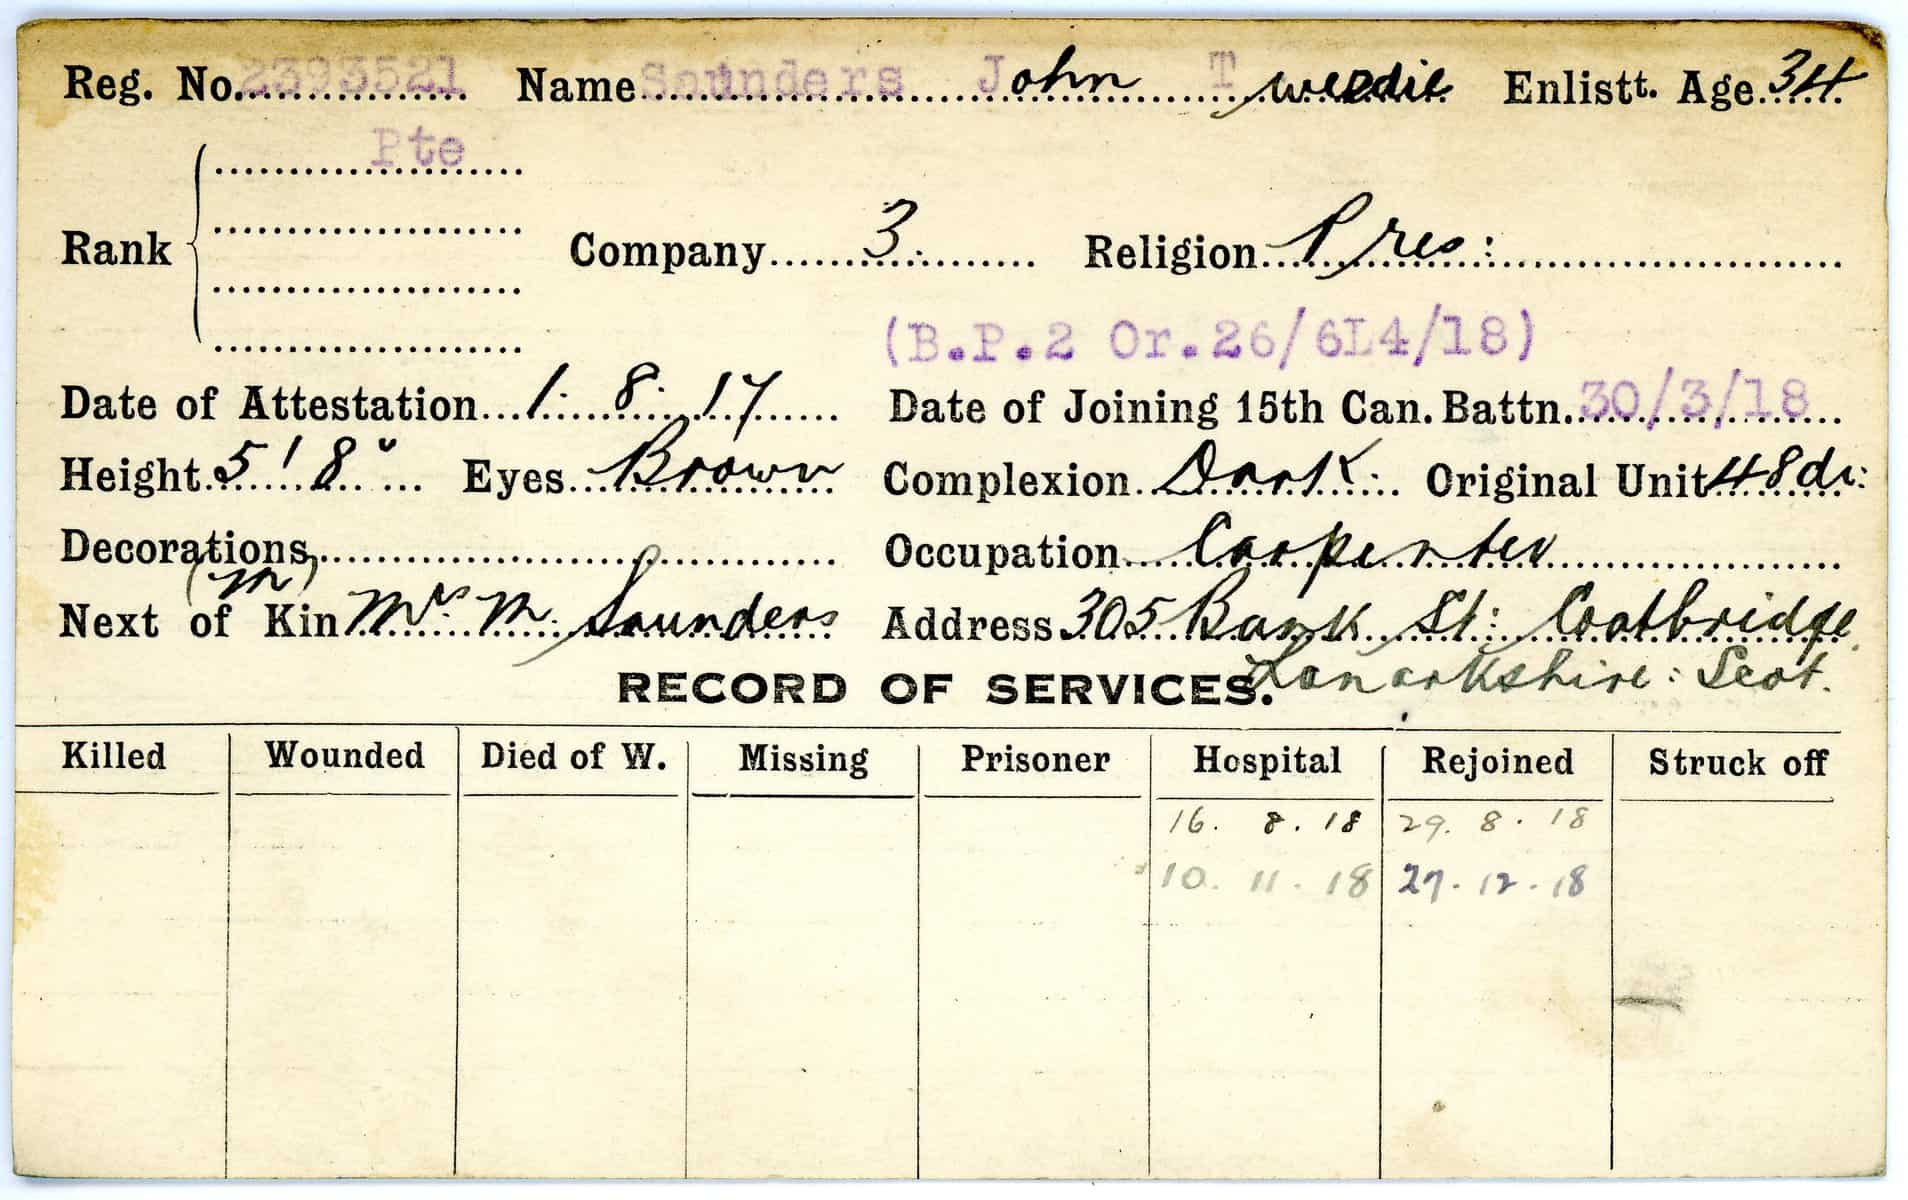 Reg. No. 2393521 Name Saunders John Tweedie Enlistt. Age. 34
Pte
Rank Company 3. Religion Pres:
(B.P.2 Or.26/6L4/18)
Date of Attestation 1. 8. 17 Date of Joining 15th Can. Battn. 30/3/18
Height 5' 8" Eyes Brown Complexion Dark. Original Unit 48
Decorations Occupation Carpenter
(m)
Next of Kin Mrs. M. Saunders Address 305 Bank St: Coatbridge.
RECORD OF SERVICES. Lanarkshire: Scot.
Killed Wounded Died of W. Missing Prisoner Hospital Rejoined Struck off
16. 8. 18 29. 8. 18
10. 11. 18 27. 12. 18